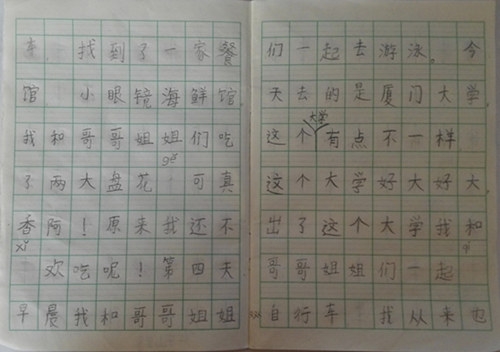 车 找到了一家餐
馆 小眼镜海鲜馆
我和哥哥姐姐们吃
了两大盘花 可真
香阿！原来我还不
欢吃呢！第四天
早晨我和哥哥姐姐
们一起去游泳。今
天去的是厦门大学
大学
这个有点不一样
这个大学好大好大
出了这个大学我和
哥哥姐姐们一起
自行车 我从来也